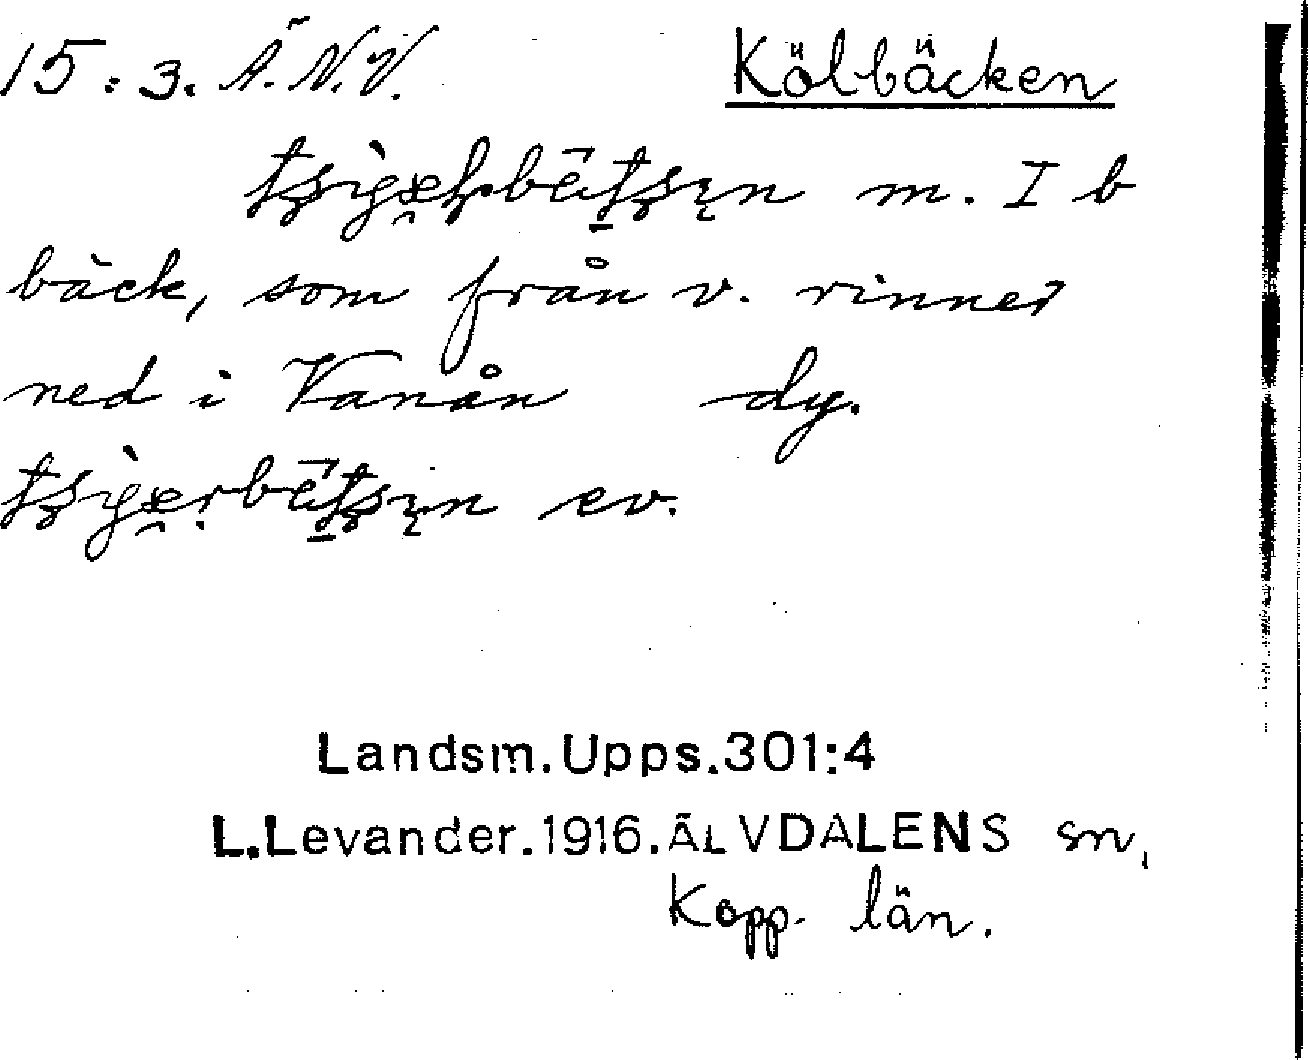 15:3. Ä.N.V. Kölbäcken
m. I b
bäck, som från v. rinner
ned i Vanån dy.
ev.
Landsm.Upps.301:4
L.Levander.1916.ÄLVDALENS sn,
Kopp. län.